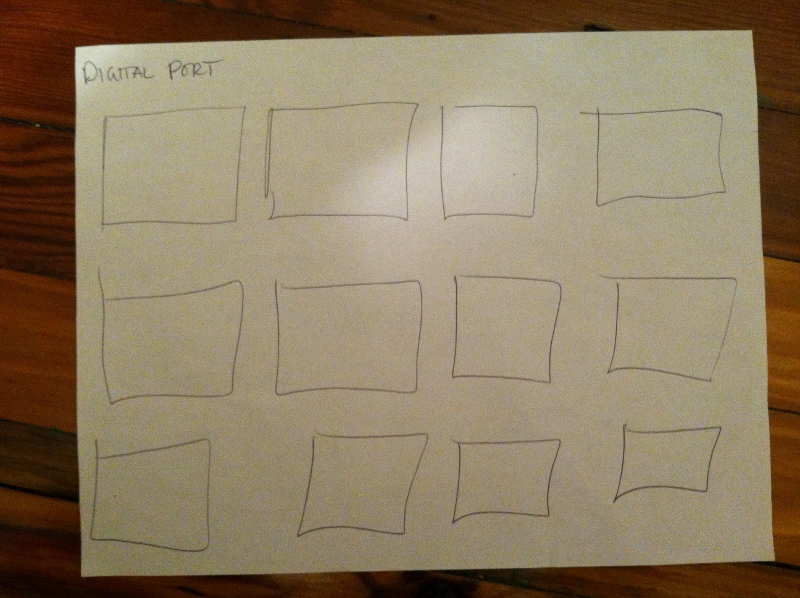 DIGITAL PORT